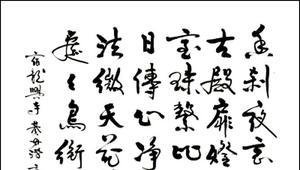 香刹夜忘
古殿扉燈
室珠繫比
日傳心淨
法微天花
處々鳥銜
宿龍興寺 綦毋潛